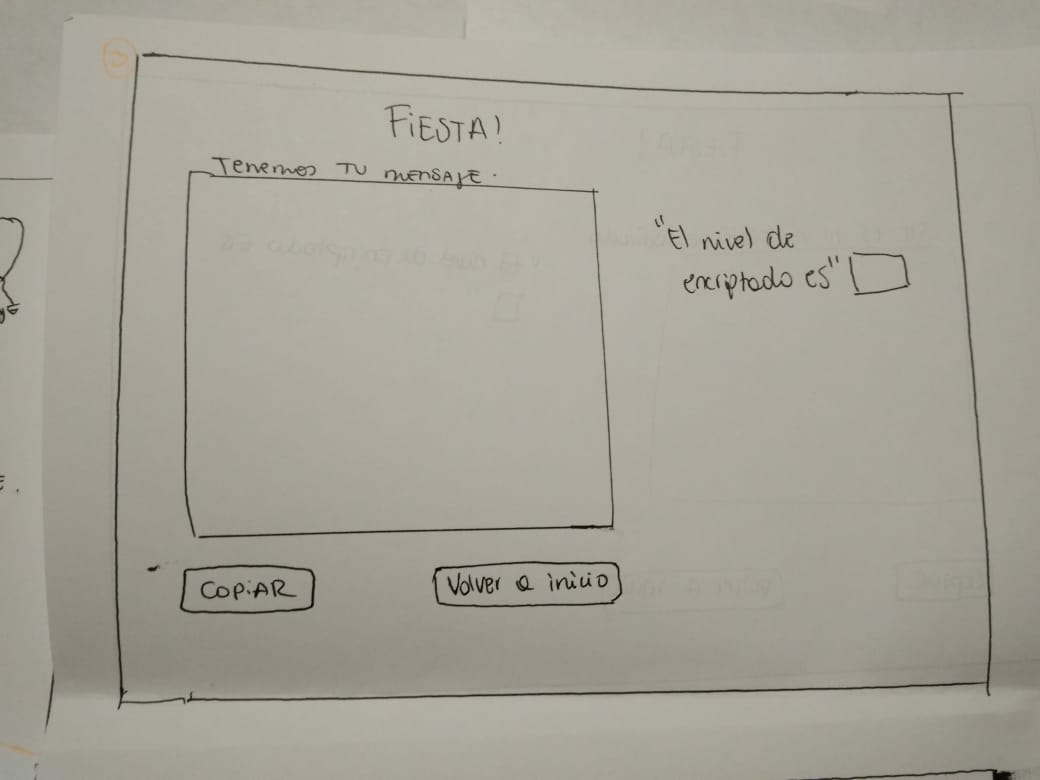 FiESTA!
Tenemos TU mensaje.
"El nivel de
encriptado es"
COPiAR
Volver a inicio